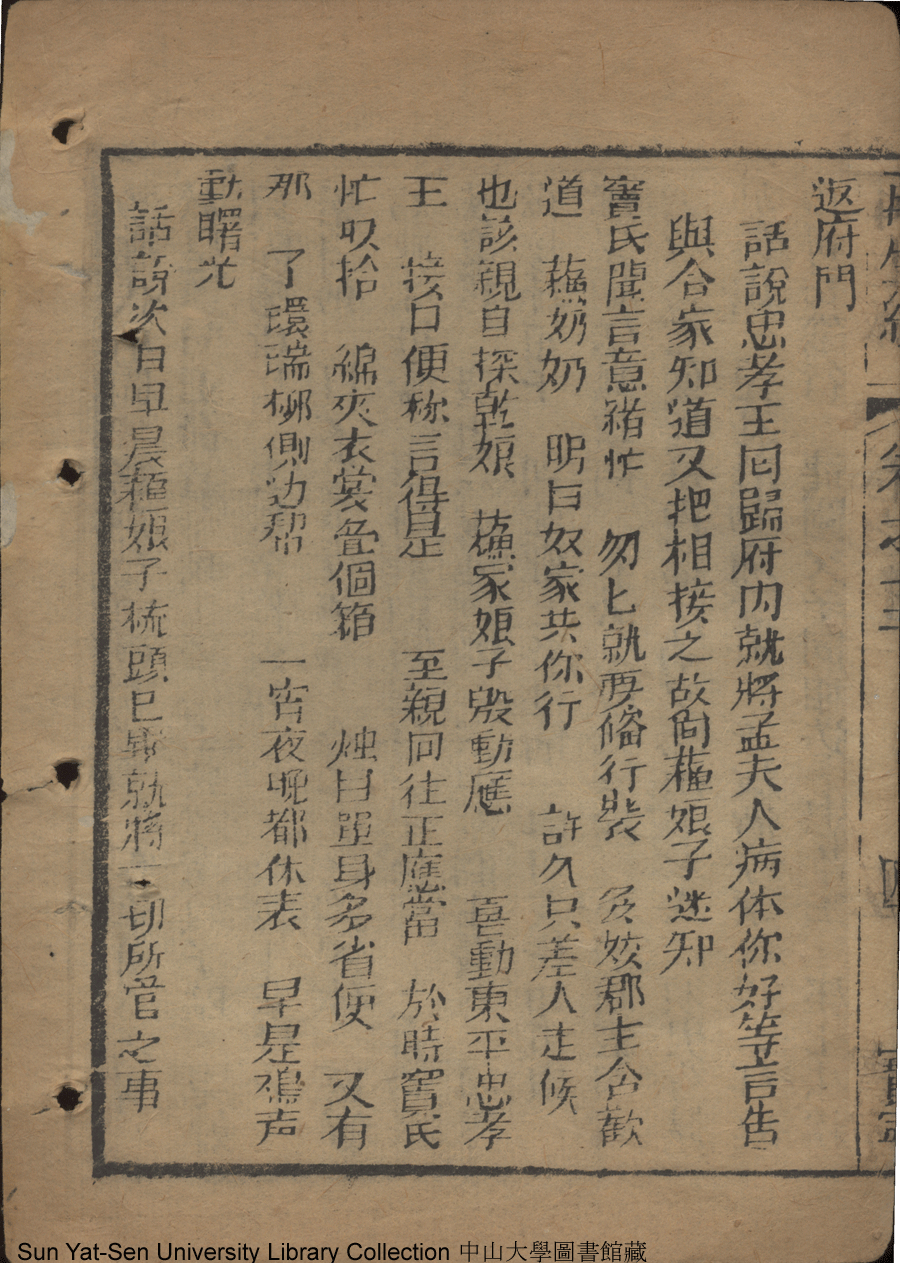 返府門
話說忠孝王回歸府內就將孟夫人病体你好等言告
與合家知道又把相接之故向蘓娘子送知
竇氏聞言意緒忙　匆匕就要偹行装　郡主含歡
道　蘓奶奶　明日奴家共你行　許久只差人走候
也該親自探乾娘　蘓家娘子殷動應　喜動東平忠孝
王　接口便称言得是　至親同往正應當　於時竇氏
忙収拾　綿夾衣裳叠個箱　烛日单身多省便　又有
那　了環瑞柳側边帮　一宵夜晚都休表　早是鳴声
動曙光
話說次日早晨蘓娘子梳頭已畢就將一切所管之事
四
Sun Yat-Sen University Library Collection 中山大學圖書館藏